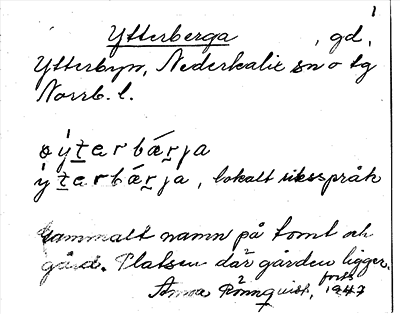 1
Ytterberga , gd,
Ytterbyn, Nederkalix sn o tg
Norrb. l.
øýterbärja
ýterbärja, lokalt riksspråk
Gammalt namn på tomt och
gård. Platsen där gården ligger.
forts
Anna Rönnqvist, 1947